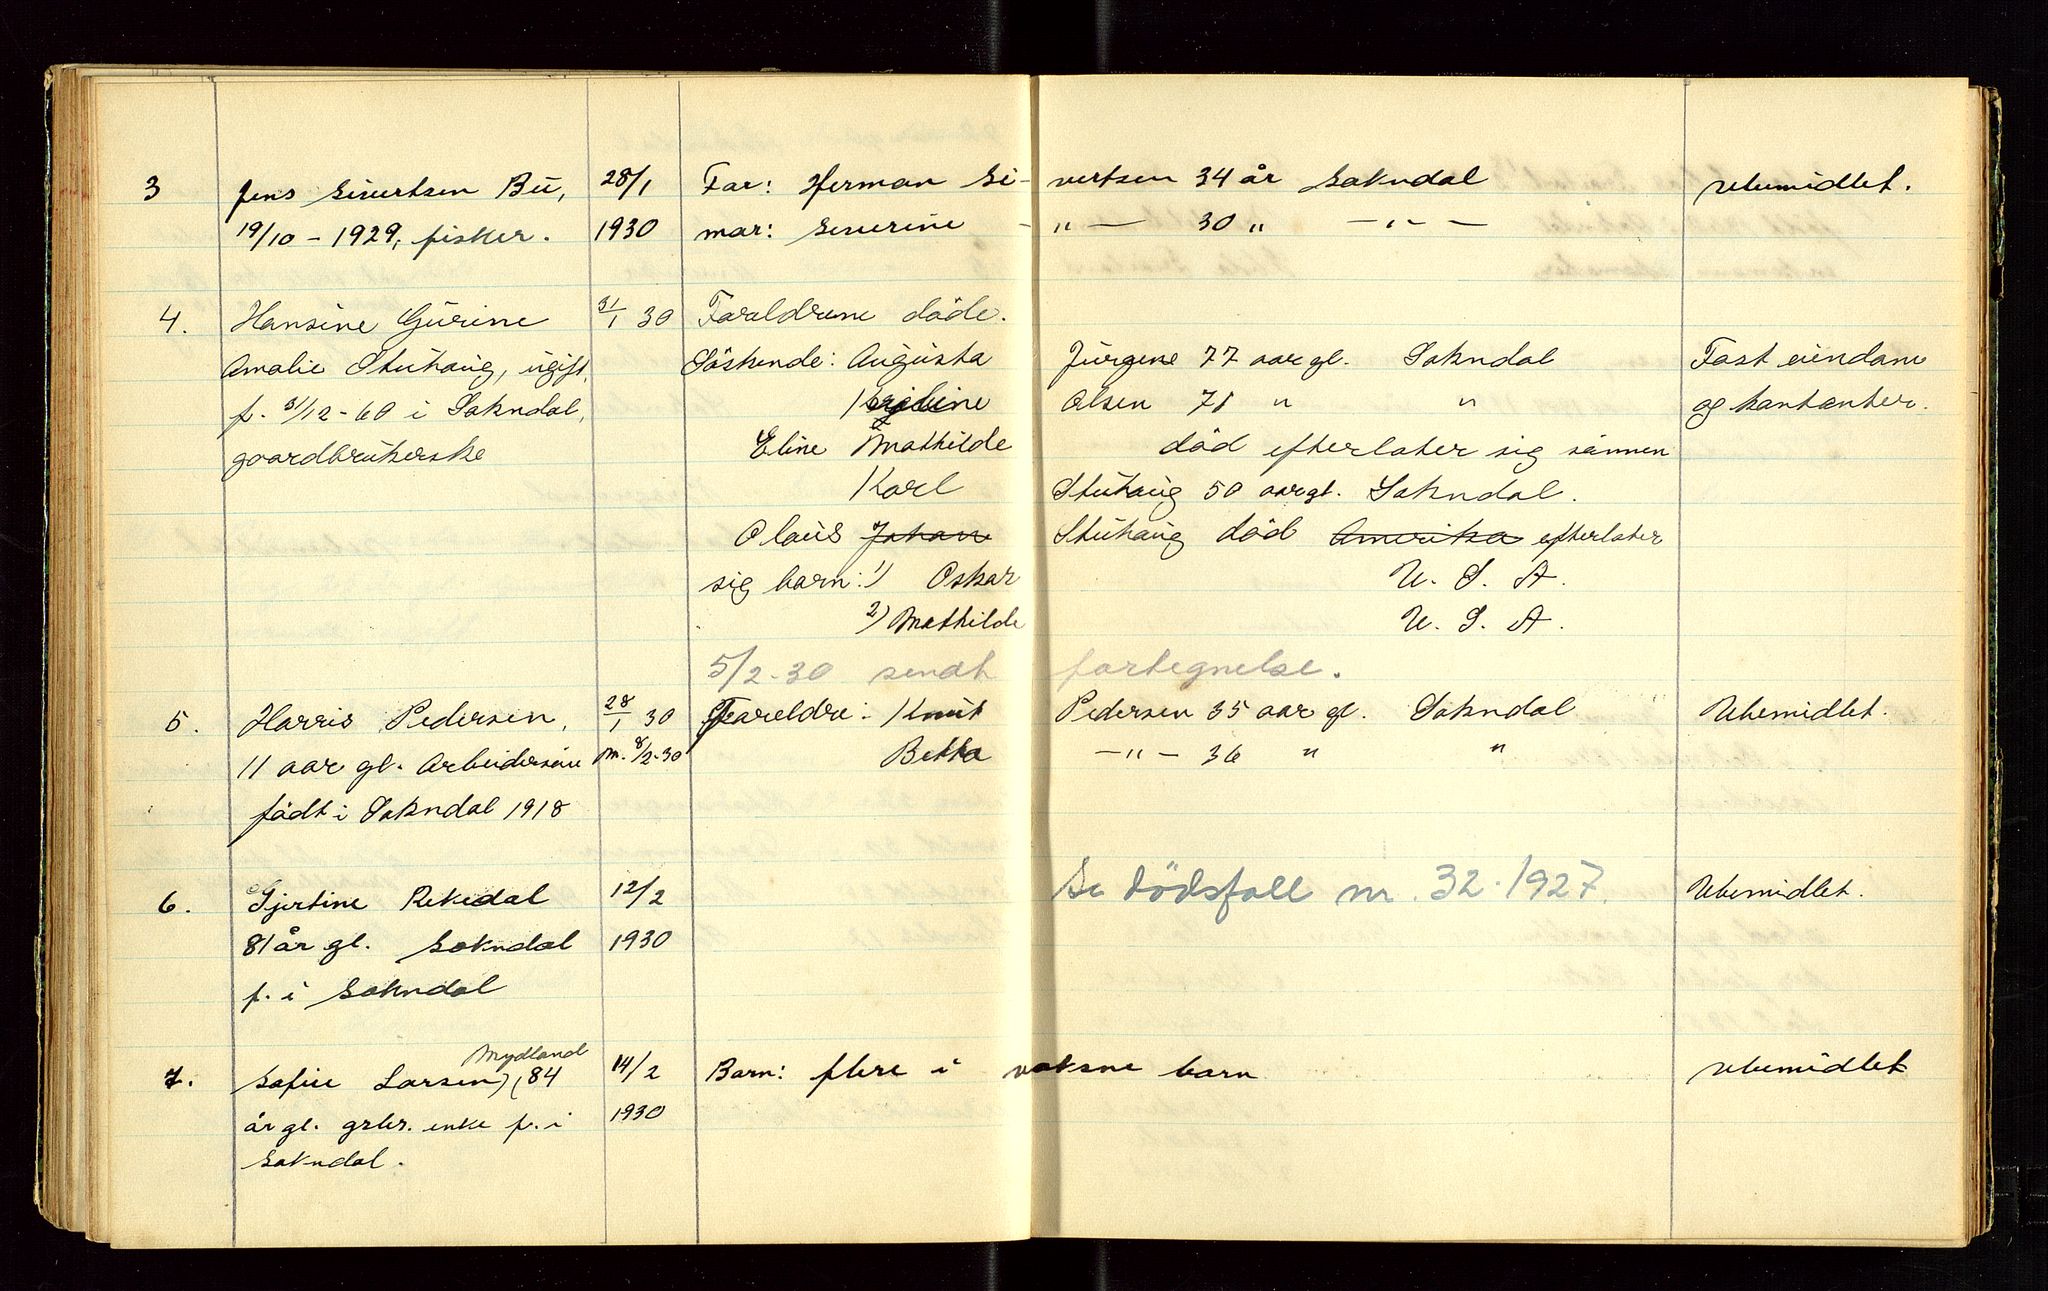 3 Jens Sivertsen Bu, 28/1 Far: Herman Si- vertsen 34 år Sokndal ubemidlet.
19/10 - 1929, fisker. 1930 mor: Severine - " - 30 " - " -
4. Hansine Gurine 31/1 30 Foreldrene døde.
Amalie Stuhaug, ugift, Söskende: Augusta Jürgine 77 aar gl. Sokndal Fast eiendom
f. 31/12-60 i Sokndal, Olsen 71 " " og kontanter.
gaardbrukerske Eline Mathilde död efterlater sig sönnen
Karl Stuhaug 50 aar gl. Sokndal.
Olaus Johan Stuhaug död Amerika efterlater
sig barn: 1) Oskar U. S. A.
2) Mathilde U. S. A.
5/2-30 sendt fortegnelse.
5. Harris Pedersen, 28/1 30 Foreldre: Knut Pedersen 35 aar gl. Sokndal Ubemidlet.
11 aar gl. Arbeidersön m. 8/2-30 Betha - " - 36 " "
födt i Sokndal 1918
6. Gjertine Rekedal 12/2 Se dödsfall nr. 32-1927. Ubemidlet.
81 år gl. Sokndal 1930
f. i Sokndal
Mydland
7. Sofie Larsen) (84 14/2 Barn: flere i voksne barn ubemidlet
år gl. grbr. enke f. i 1930
Sokndal.